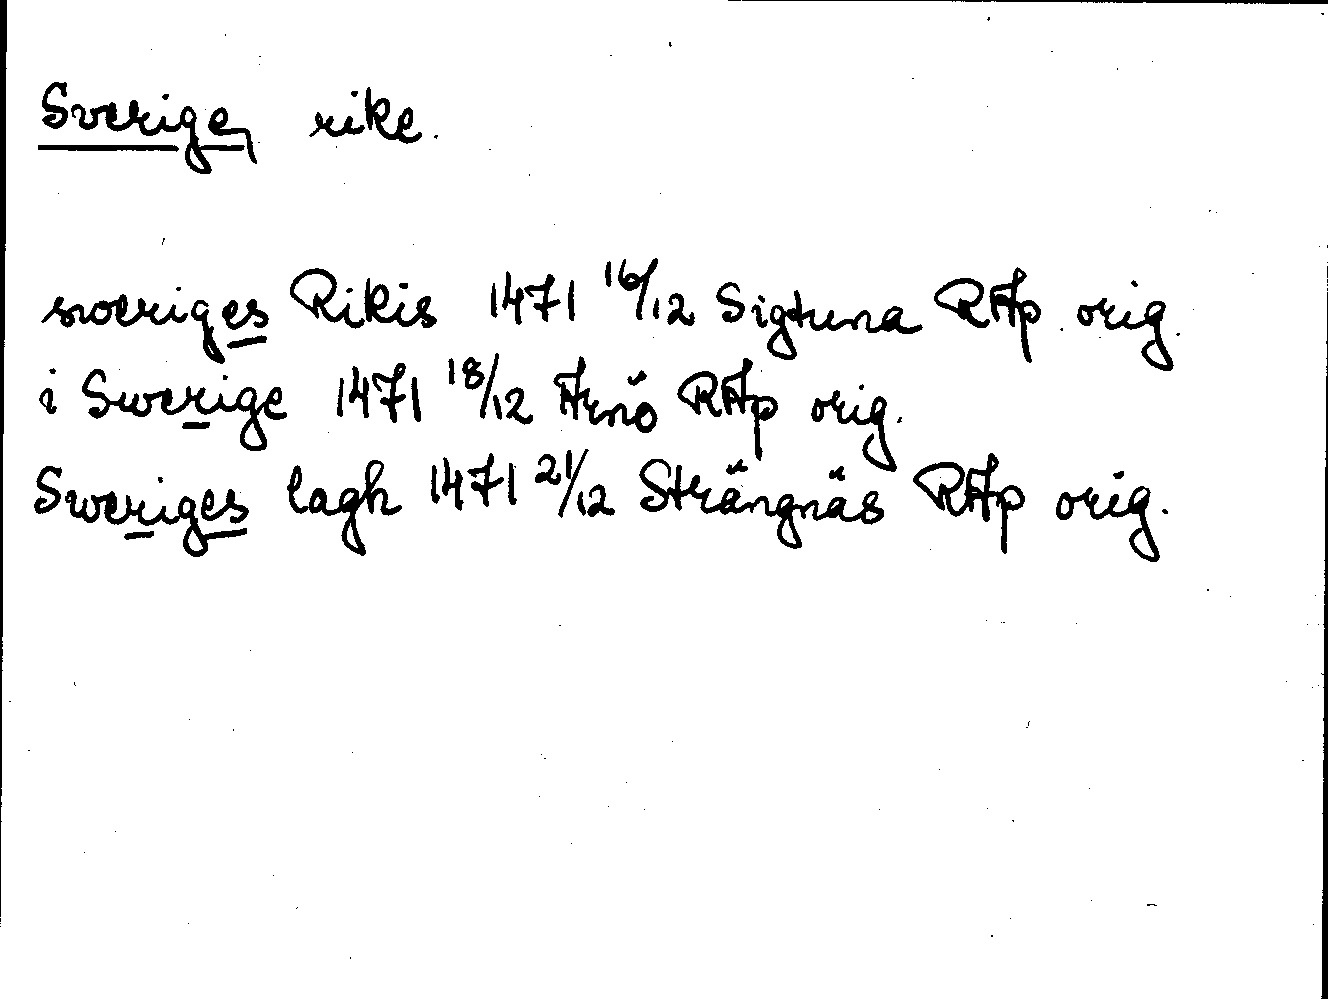 Sverige, rike.
sweriges Rikis 1471 16/12 Sigtuna RAp orig.
i Swerige 1471 18/12 Arnö RAp orig.
Sweriges lagh 1471 21/12 Strängnäs RAp orig.